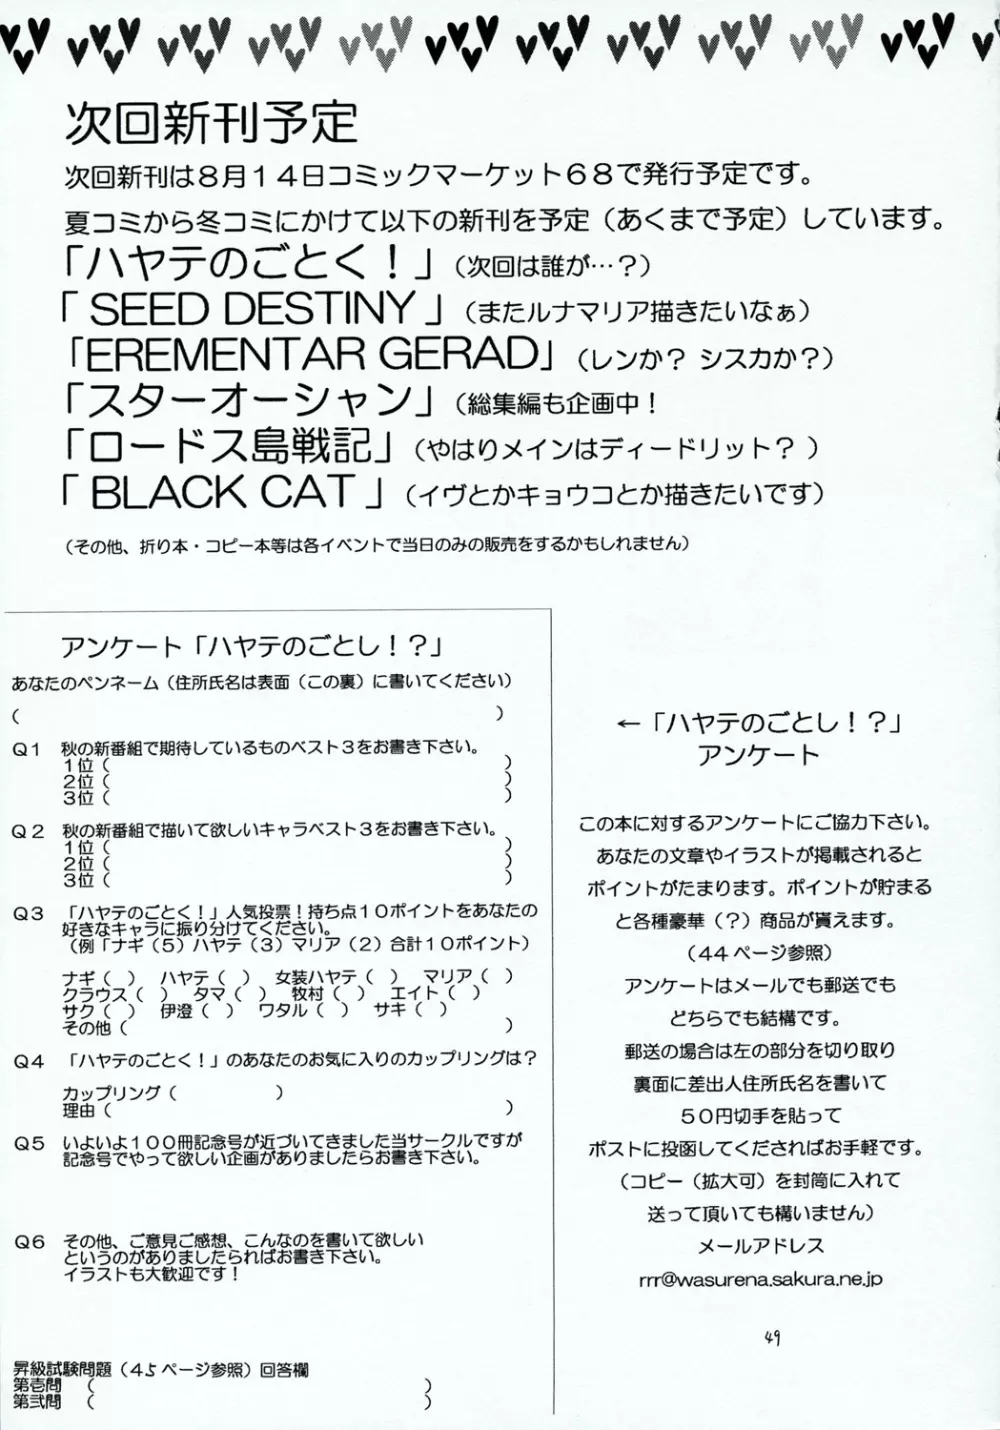 次回新刊予定
次回新刊は8月14日コミックマーケット68で発行予定です。
夏コミから冬コミにかけて以下の新刊を予定（あくまで予定）しています。
「ハヤテのごとく！」（次回は誰が…？）
「 SEED DESTINY 」（またルナマリア描きたいなぁ）
「EREMENTAR GERAD」（レンか？ シスカか？）
「スターオーシャン」（総集編も企画中！
「ロードス島戦記」（やはりメインはディードリット？ ）
「 BLACK CAT 」（イヴとかキョウコとか描きたいです）
（その他、折り本・コピー本等は各イベントで当日のみの販売をするかもしれません）
アンケート「ハヤテのごとし！？」
あなたのペンネーム（住所氏名は表面（この裏）に書いてください）
（　　　　　　　　　　　　　　　　　　　　　　　　　　　　　　）
Q1　秋の新番組で期待しているものベスト3をお書き下さい。
1位（　　　　　　　　　　　　　　　　　　　　　　　　　）
2位（　　　　　　　　　　　　　　　　　　　　　　　　　）
3位（　　　　　　　　　　　　　　　　　　　　　　　　　）
Q2　秋の新番組で描いて欲しいキャラベスト3をお書き下さい。
1位（　　　　　　　　　　　　　　　　　　　　　　　　　）
2位（　　　　　　　　　　　　　　　　　　　　　　　　　）
3位（　　　　　　　　　　　　　　　　　　　　　　　　　）
Q3　「ハヤテのごとく！」人気投票！持ち点10ポイントをあなたの
好きなキャラに振り分けてください。
（例「ナギ（5）ハヤテ（3）マリア（2）合計10ポイント）
ナギ（　）　ハヤテ（　）　女装ハヤテ（　）　マリア（　）
クラウス（　）　タマ（　）　牧村（　）　エイト（　）
サク（　）　伊澄（　）　ワタル（　）　サキ（　）
その他（　　　　　　　　　　　　　　　　　　　　　　　）
Q4　「ハヤテのごとく！」のあなたのお気に入りのカップリングは？
カップリング（　　　　　　）
理由（　　　　　　　　　　　　　　　　　　　　　　　　）
Q5　いよいよ100冊記念号が近づいてきました当サークルですが
記念号でやって欲しい企画がありましたらお書き下さい。
Q6　その他、ご意見ご感想、こんなのを書いて欲しい
というのがありましたらればお書き下さい。
イラストも大歓迎です！
昇級試験問題（45ページ参照）回答欄
第壱問　（　　　　　　　　　　　　　　　　　　　　）
第弐問　（　　　　　　　　　　　　　　　　　　　　）
←「ハヤテのごとし！？」
アンケート
この本に対するアンケートにご協力下さい。
あなたの文章やイラストが掲載されると
ポイントがたまります。ポイントが貯まる
と各種豪華（？）商品が貰えます。
（44ページ参照）
アンケートはメールでも郵送でも
どちらでも結構です。
郵送の場合は左の部分を切り取り
裏面に差出人住所氏名を書いて
50円切手を貼って
ポストに投函してくださればお手軽です。
（コピー（拡大可）を封筒に入れて
送って頂いても構いません）
メールアドレス
rrr@wasurena.sakura.ne.jp
49